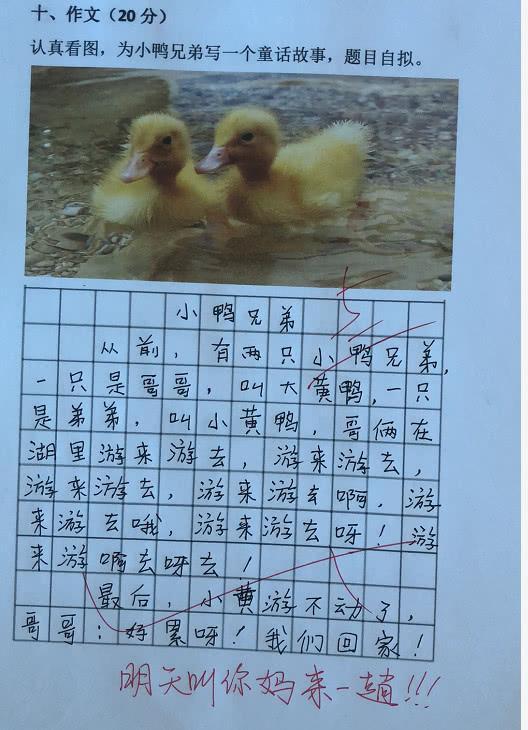 十、作文（20分）
认真看图，为小鸭兄弟写一个童话故事，题目自拟。
5
小鸭兄弟
从前，有两只小鸭兄弟，
一只是哥哥，叫大黄鸭，一只
是弟弟，叫小黄鸭，哥俩在
湖里游来游去，游来游去，
游来游去，游来游去啊，游
来游去哦，游来游去呀！游
来游啊去呀去！
最后，小黄游不动了，
哥哥：好累呀！我们回家！
明天叫你妈来一趟!!!